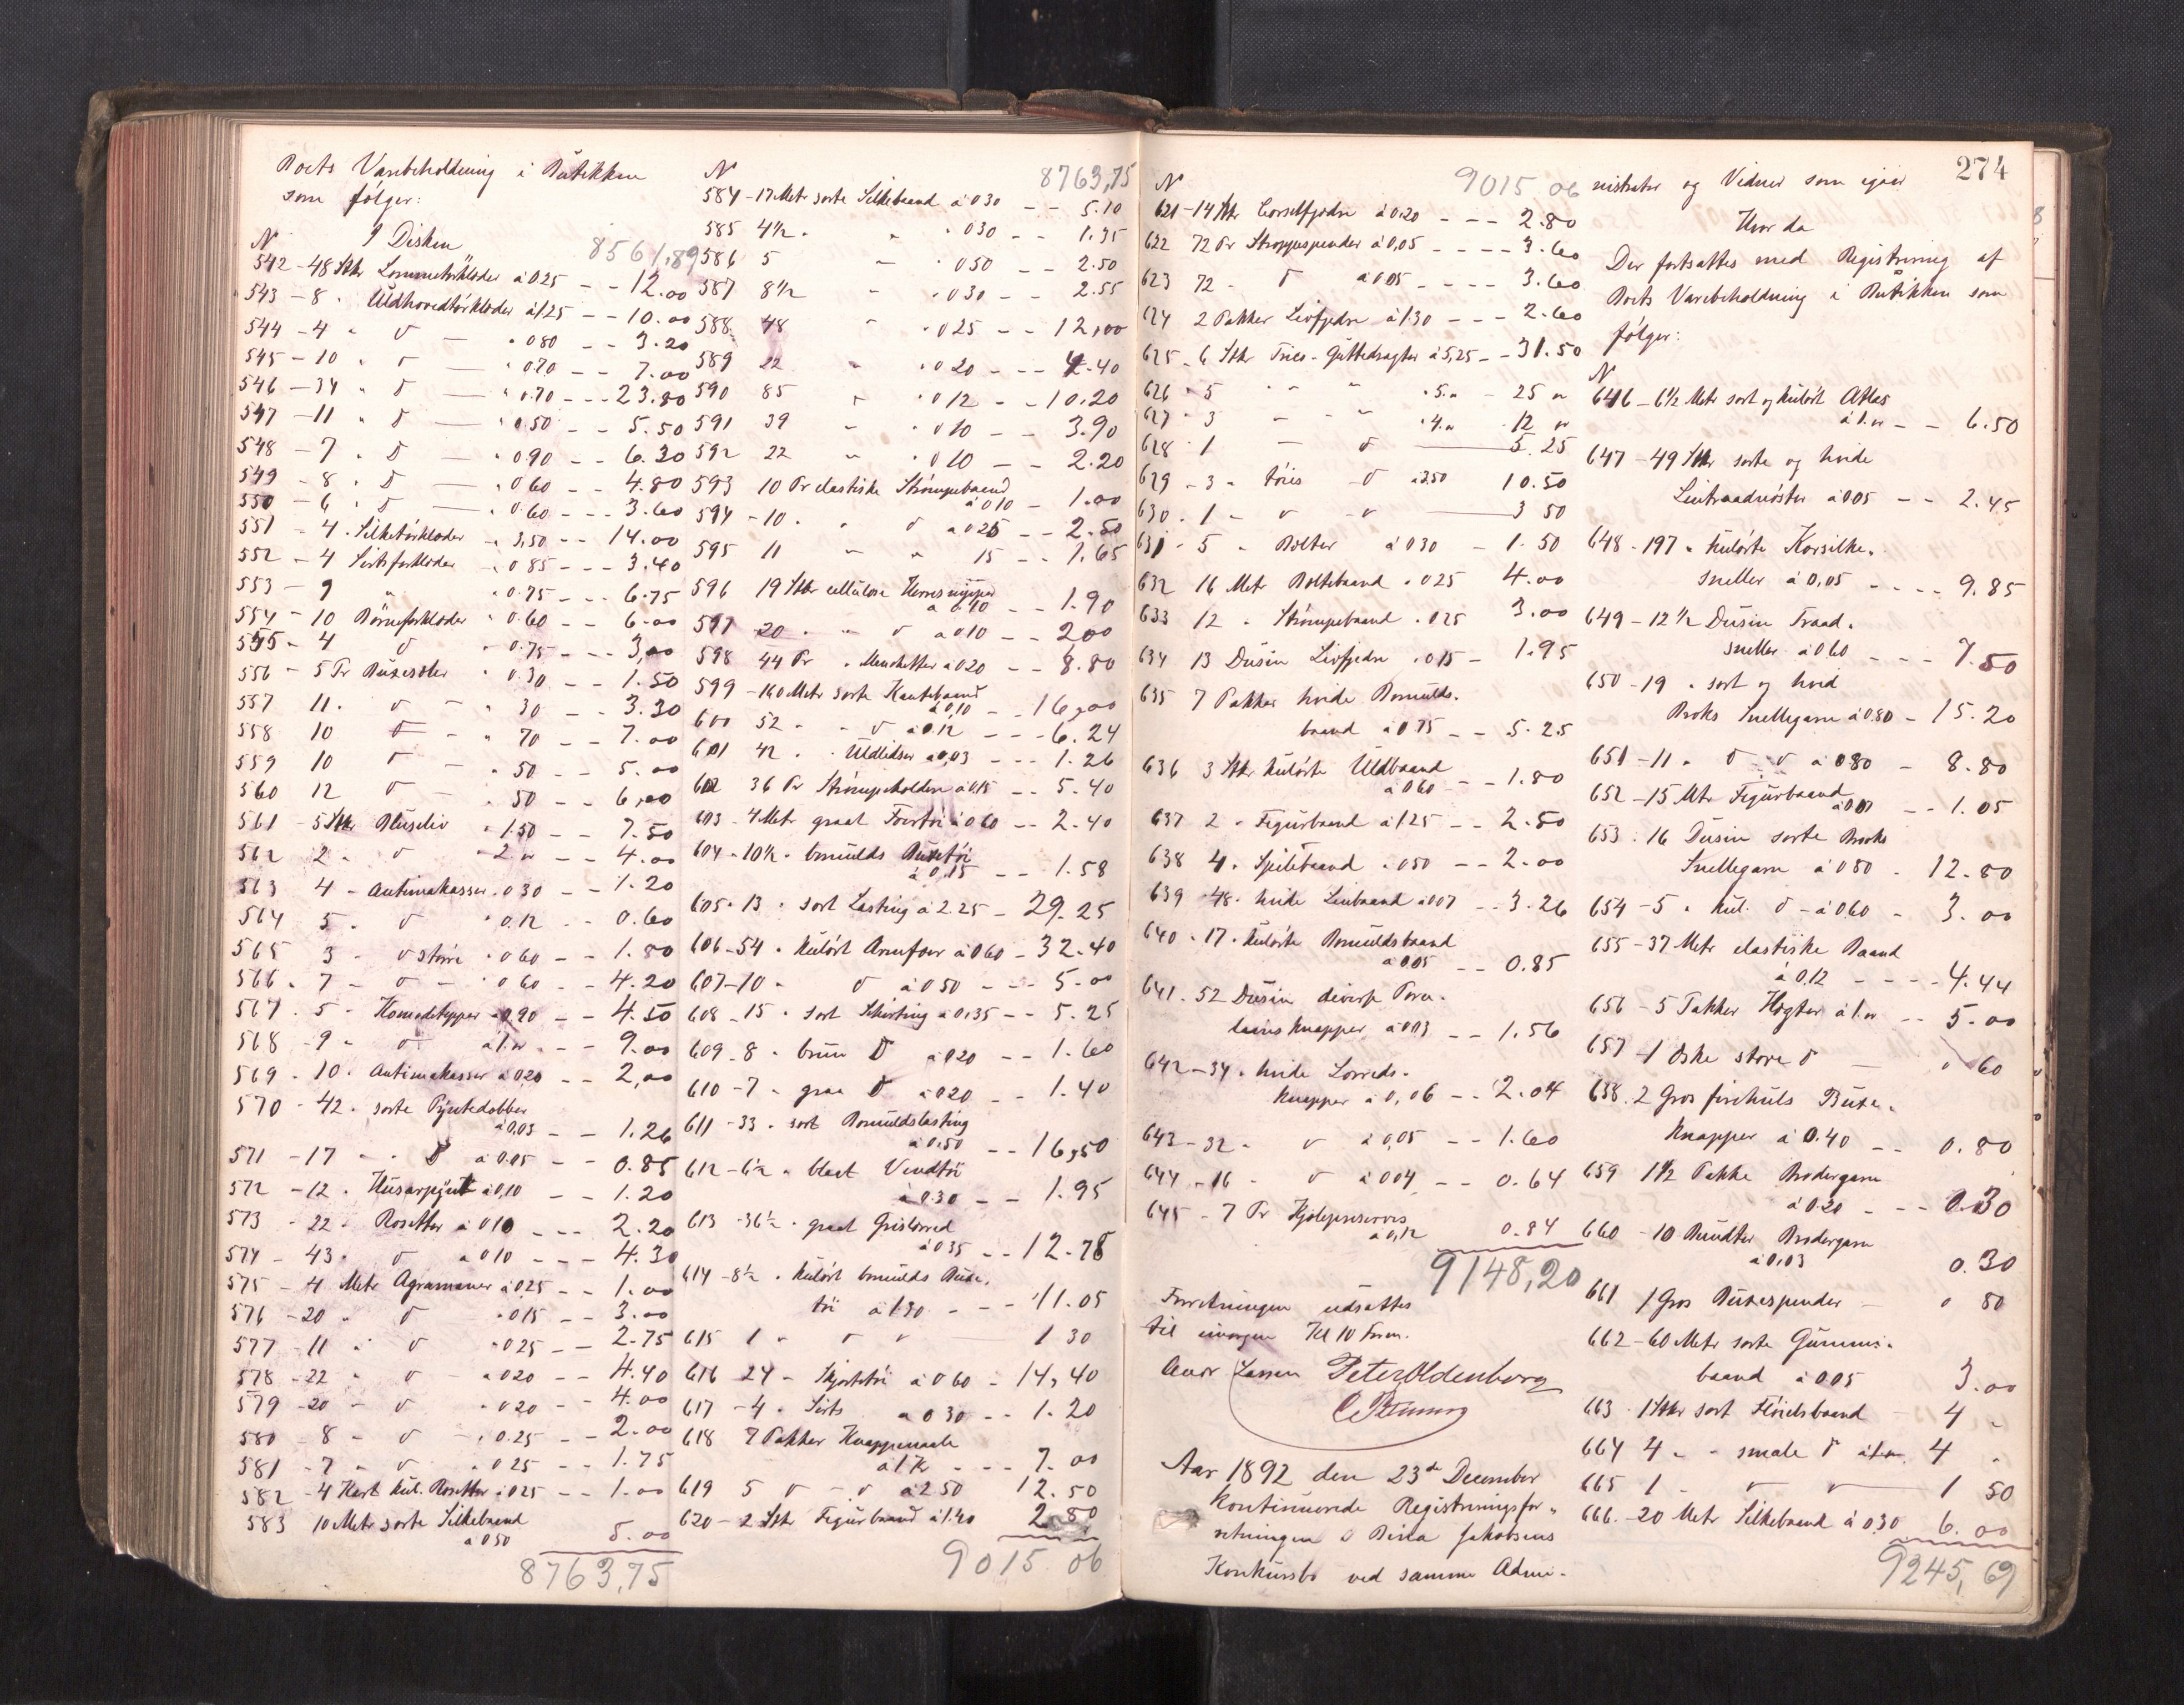 Boets Varebeholdning i Butikken
som følger:
I Disken
N 8561,89
542 - 48 Stkr Lommetørklæder à 025 - - 12.00
543 - 8 " Uldhovedtørklæder à 1.25 - - 10.00
544 - 4 " d° — " 080 - - 3.20
545 - 10 " d° — " 0.70 - - 7.00
546 - 34 " d° — " 0.70 - - - 23.80
547 - 11 " d° — " 0.50 - - 5.50
548 - 7 " d° — " 090 - - 6.30
549 - 8 " d° — " 060 - - 4.80
550 - 6 " d° — " 0.60 - - - 3.60
551 - 4 " Silketørklæder " 3,50 - - 14.00
552 - 4 Sirtsforklæder " 0 85 - - - 3.40
553 - 9 " " 0.75 - - - 6.75
554 - 10 Børneforklæder " 0.60 - - 6.00
555 - 4 d° " 0.75 - - - 3,00
556 - 5 Pr Buxeseler " 0.30 - - 1.50
557 11 " d° - " 30 - - 3.30
558 10 d° - " 70 - - 7.00
559 10 d° - " 50 - - 5.00
560 12 d° - " 50 - - 6,00
561 - 5 Stkr Bluseliv " 1.50 - - 7.50
562 2 " d° " 2 " - - 4.00
563 4 - Antimakasser " 0 30 - - 1.20
564 5 " d° " 0.12 - 0.60
565 3 - d° større " 0 60 - - 1.80
566 . 7 - d° - " 0 60 - - 4.20
567 . 5 - Komodetepper " 0.90 - - 4.50
568 - 9 " d° à 1.00 - - - 9.00
569 - 10 " Antimakasser à 0,20 - - 2,00
570 - 42 " sorte Pyntedobber
à 0,03 - - 1.26
571 - 17 - " d° à 0.05 - - 0.85
572 - 12 . Husarpynt à 0,10 - - 1.20
573 - 22 - Rosetter à 010 - - - 2.20
574 - 43 " d° à 0 10 - - - 4.30
575 - 4 Metr Agramaner à 0.25 - - 1.00
576 - 20 " d° " 015 - - 3.00
577 - 11 " d° " 0 25 - - 2.75
578 - 22 " d° " 0 20 - - 4.40
579 - 20 - d° " 0 20 - - 4.00
580 - 8 - d° - " 0.25 - - 2.00
581 - 7 - d° " 0 25 - - 1.75
582 - 4 Kart kul. Rosetter à 025 - - 1.00
583 10 Metr sorte Silkebaand
à 0 50 5.00
8763,75
N 8763,75
584 - 17 Metr sorte Silkebaand à 0 30 - - 5.10
585 4½ " " " 030 - - 1.35
586 5 " " 050 - - 2.50
587 8½ " " 030 - - 2.55
588 48 " " 025 - - 12,00
589 22 " " 0 20 - - - 4.40
590 85 " " 0 12 - - 10.20
591 39 " " 0 10 - - 3.90
592 22 " " 0 10 - - 2.20
593 10 Pr elastiske Strømpebaand
à 0 10 - 1.00
594 - 10 " " d° à 0 25 - - 2.50
595 11 " " 15 - - 1.65
596 19 Stkr cellulose Herresnipper
à 0.10 - - 1.90
597 20 " " d° à 0 10 - - 2,00
598 44 Pr " Menchetter à 0 20 - - 8.80
599 - 160 Metr sorte Kantebaand
à 0,10 - - 16,00
600 52 " " d° à 0.12 - - - 6.24
601 42 " " Uldlidser à 0,03 - - - 1.26
602 36 Pr Strømpeholdere à 0.15 - - 5.40
603 - 4 Metr graat Foertøi à 0 60 - - 2.40
604 - 10½ " bomulds Buxetøi
à 0,15 - - 1.58
605 - 13 " sort Lasting à 2.25 - 29.25
606 - 54 " kulørt Armfoer à 0 60 - 32.40
607 - 10 " d° à 0 50 - - - 5.00
608 - 15 " sort Shirting à 0,35 - - 5.25
609 - 8 " brun d° à 0 20 - - 1.60
610 - 7 - graa d° à 0 20 - - 1.40
611 - 33 . sort Bomuldslasting
à 0.50 - - 16,50
612 - 6½ " blaat Vendtøi
à 0.30 - - 1.95
613 - 36½ " graat Grislerred
à 0 35 - - 12.78
614 - 8½ " kulørt bomulds Buxe-
tøi à 1.30 - - - 11.05
615 1 " d° " — 1 30
616 24 - Skjortetøi à 0 60 - 14,40
617 - 4 " Sirts à 0 30 - - 1.20
618 7 Pakker Knappenaale
à 1 Kr - - - 7.00
619 5 d° - d° à 2 50 12.50
620 - 2 Stkr Figurbaand à 1.40 2.80
9015.06
N 9015 06
621 - 14 Stkr Corsetfjedre à 0.20 - - - 2.80
622 72 Pr Stroppespender à 0,05 - - - - 3.60
623 72 - d° à 0 05 - - - - 3.60
624 2 Pakker Livfjedre à 1.30 - - - 2.60
625 - 6 Stkr Tries - Guttedragter à 5,25 - - 31.50
626 - 5 " " " " 5 " - 25 "
627 - 3 - - " " 4 " - 12 "
628 - 1 — d° ——— 5.25
629 - 3 " tøies - d° à 3.50 10.50
630 . 1 - d° - d° ——— 3 50
631 - 5 " Belter à 0 30 - 1.50
632 16 Metr Beltebaand " 0 25 4.00
633 12 " Strømpebaand " 0 25 3.00
634 13 Dusin Livfjedre " 0 15 - 1.95
635 7 Pakker hvide Bomulds-
baand à 0.75 - - 5.25
636 3 Stkr kulørte Uldbaand
à 0 60 - - 1.80
637 2 " Figurbaand à 1.25 - - 2.50
638 4 " Spilebaand " 0 50 - - 2.00
639 - 48 " hvide Linbaand à 0 07 - - 3.26
640 - 17 " kulørte Bomuldsbaand
à 0.05 - - 0.85
641 . 52 Dusin diverse Porce-
lainsknapper à 0 03 - - 1.56
642 - 34 " hvide Lerreds-
knapper à 0,06 - - 2.04
643 - 32 " d° à 0,05 - - 1.60
644 - 16 - d° à 0 04 - - 0.64
645 - 7 Pr Kjolepreserves
à 0,12 0.84
9148,20
Forretningen udsattes
til imorgen Kl 10 Form.
Andr Larsen Peter Oldenborg
Aar 1892 den 23de December
kontinuerede Registreringsfor-
retningen i Berta Jakobsens
Konkursbo ved samme Admi-
274
nistrator og Vidner som igaar
Hvor da
Der fortsattes med Registrering af
Boets Varebeholdning i Butikken som
følger:
N
646 - 6½ Metr sort og kulørt Atlas
à 1.00 - - 6.50
647 - 49 Stkr sorte og hvide
Lintraadnøster à 0 05 - - 2.45
648 - 197 " kulørte Korsilke-
sneller à 0,05 - - - - 9.85
649 - 12½ Dusin Traad-
sneller à 0.60 - - - 7.50
650 - 19 " sort og hvid
Broks Snellegarn à 0.80 - 15.20
651 - 11 " d° d° à 0 80 - 8.80
652 - 15 Metr Figurbaand
à 0 07 - - 1.05
653 . 16 Dusin sorte Broks
Snellegarn à 0 80 - 12.80
654 - 5 " kul. d° - à 0.60 - 3.00
655 - 37 Metr elastiske Baand
à 0,12 - - - - 4.44
656 - 5 Pakker Hægter à 1.00 - - 5.00
657 - 1 Æske store d° — 0 60
658 . 2 Gros firehuls Buxe-
knapper à 0.40 - - 0.80
659 1½ Pakke Brodergarn
à 0.20 - - - 0.30
660 - 10 Bundter Brodergarn
à 0,03 0.30
661 1 Gros Buxespender — 0 80
662 - 60 Metr sorte Gummi-
baand à 0.05 3.00
663 - 1 Stkr sort Fløielsbaand - 4 "
664 4 " - smale d° à 1.00 4 "
665 1 - d° d° — 1 50
666 - 20 Metr Silkebaand à 0.30 6.00
9245,69